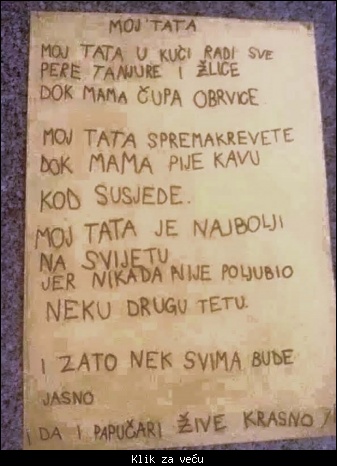 MOJ TATA
MOJ TATA U KUĆI RADI SVE
PERE TANJURE I ŽLICE
DOK MAMA ČUPA OBRVICE.
MOJ TATA SPREMAKREVETE
DOK MAMA PIJE KAVU
KOD SUSJEDE.
MOJ TATA JE NAJBOLJI
NA SVIJETU
JER NIKADA NIJE POLJUBIO
NEKU DRUGU TETU.
I ZATO NEK SVIMA BUDE
JASNO
DA I PAPUČARI ŽIVE KRASNO!
Klik za veću